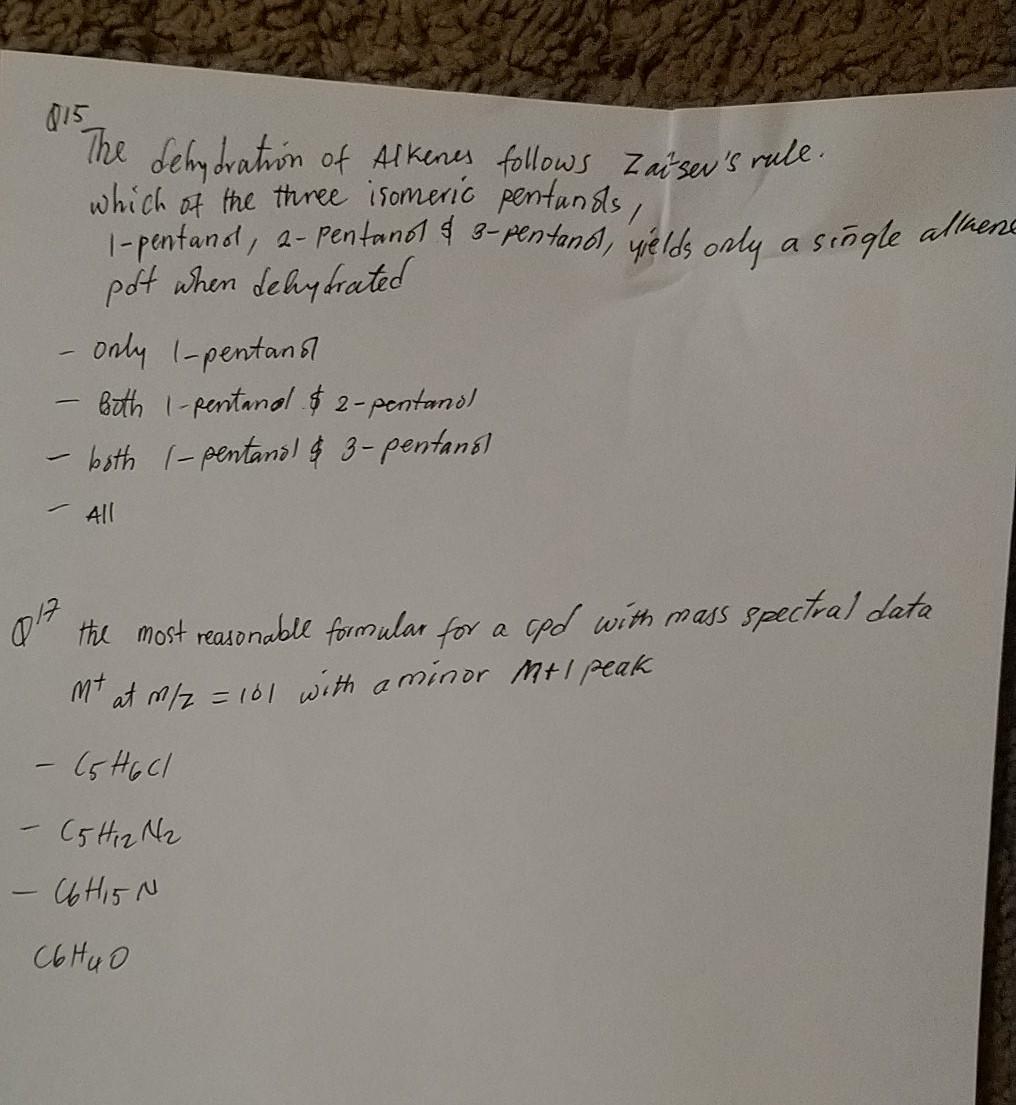 Q15
The dehydration of Alkenes follows Zaitsev's rule.
which of the three isomeric pentanols,
1-pentanol, 2-pentanol & 3-pentanol, yields only a single alkene
pdt when dehydrated
- only 1-pentanol
- Both 1-pentanol & 2-pentanol
- both 1-pentanol & 3-pentanol
- All
Q17 the most reasonable formular for a cpd with mass spectral data
M+ at m/z = 101 with a minor M+1 peak
- C5H6Cl
- C5H12N2
- C6H15N
C6H4O